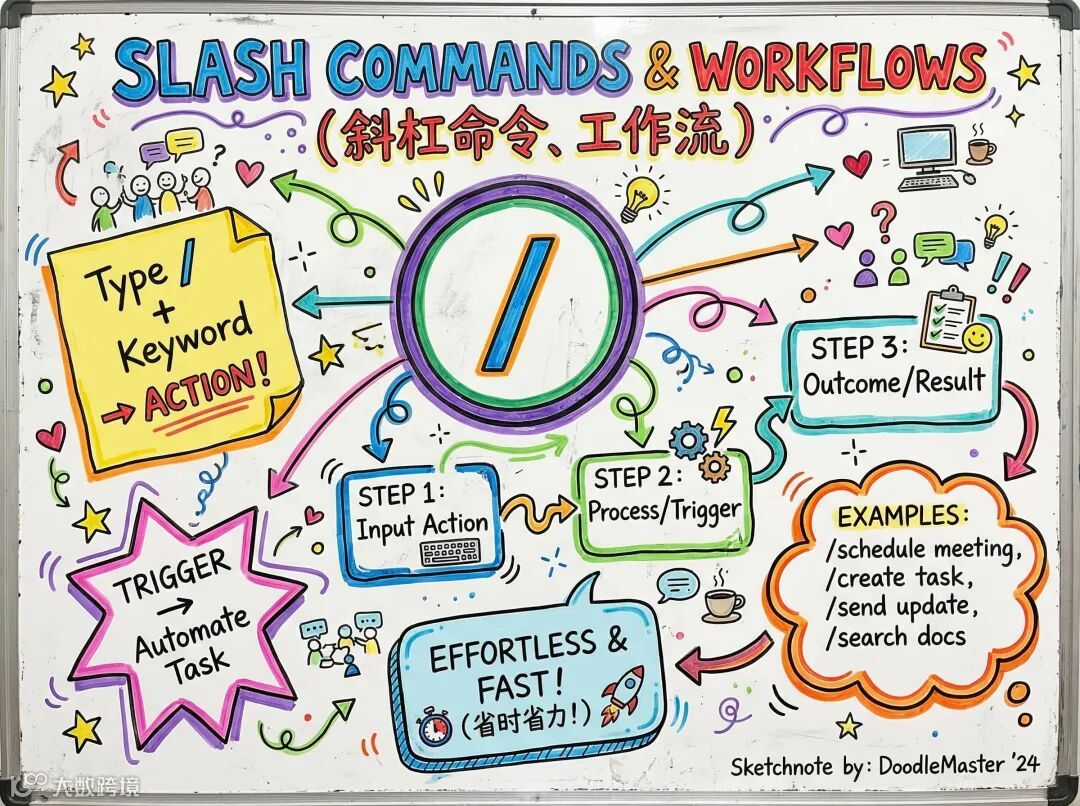 SLASH COMMANDS & WORKFLOWS
(斜杠命令、工作流)
Type /
+
Keyword
→ ACTION!
/
STEP 1:
Input Action
STEP 2:
Process/Trigger
STEP 3:
Outcome/Result
TRIGGER
→
Automate
Task
EXAMPLES:
/schedule meeting,
/create task,
/send update,
/search docs
EFFORTLESS &
FAST!
(省时省力!)
Sketchnote by: DoodleMaster '24
大数跨境